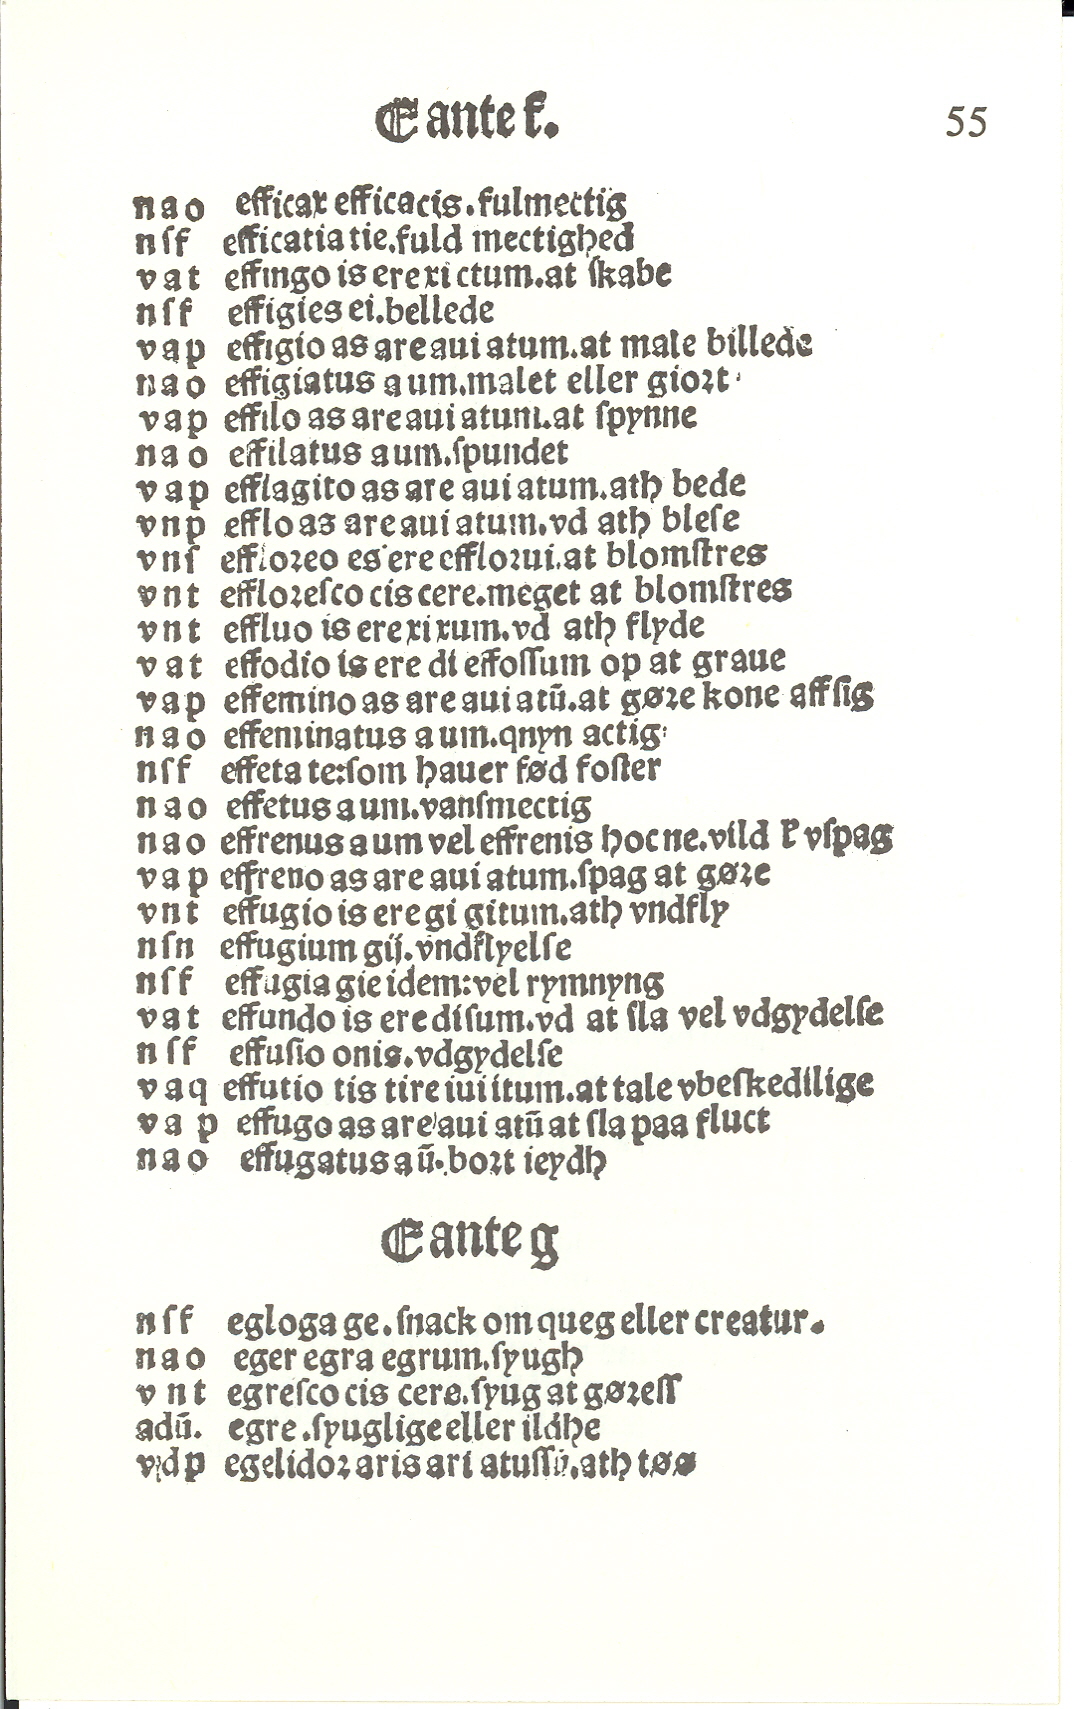 E ante f.
55
n a o efficax efficacis.fulmectig
n ſ f efficatia tie.fuld mectighed
v a t effingo is ere xi ctum.at ſkabe
n ſ f effigies ei.bellede
v a p effigio as are aui atum.at male billede
n a o effigiatus a um.malet eller gioꝛt
v a p effilo as are aui atum.at ſpynne
n a o effilatus a um.ſpundet
v a p efflagito as are aui atum.ath bede
v n p efflo as are aui atum.vd ath bleſe
v n ſ effloꝛeo es ere effloꝛui.at blomſtres
v n t effloꝛeſco cis cere.meget at blomſtres
v n t effluo is ere xi xum.vd ath flyde
v a t effodio is ere di effoſſum op at graue
v a p effemino as are aui atū.at gøꝛe kone aff ſig
n a o effeminatus a um.qnyn actig
n ſ f effeta te:ſom hauer fød foſter
n a o effetus a um.vanſmectig
n a o effrenus a um vel effrenis hoc ne.vild ꝛ vſpag
v a p effreno as are aui atum.ſpag at gøꝛe
v n t effugio is ere gi gitum.ath vndfly
n ſ n effugium gij.vndflyelſe
n ſ f effugia gie idem:vel rymnyng
v a t effundo is ere di ſum.vd at ſla vel vdgydelſe
n ſ f effuſio onis.vdgydelſe
v a q effutio tis tire iui itum.at tale vbeſkedilige
v a p effugo as are aui atū at ſla paa fluct
n a o effugatus a ū.boꝛt ieydh
E ante g
n ſ f egloga ge.ſnack om queg eller creatur.
n a o eger egra egrum.ſyugh
v n t egreſco cis cere.ſyug at gøꝛeſſ
adū. egre.ſyuglige eller ildhe
v d p egelidoꝛ aris ari atuſſū.ath tøø